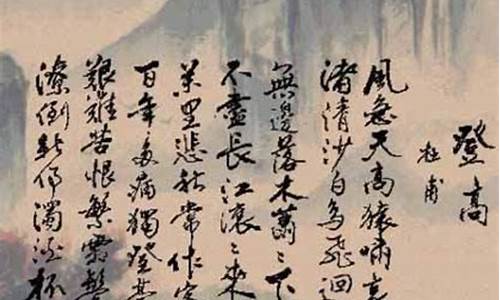 登高
杜甫
風急天高猿嘯哀
渚清沙白鳥飛迴
無邊落木蕭〻下
不盡長江滾〻來
萬里悲秋常作客
百年多病獨登臺
艱難苦恨繁霜鬢
潦倒新停濁酒杯